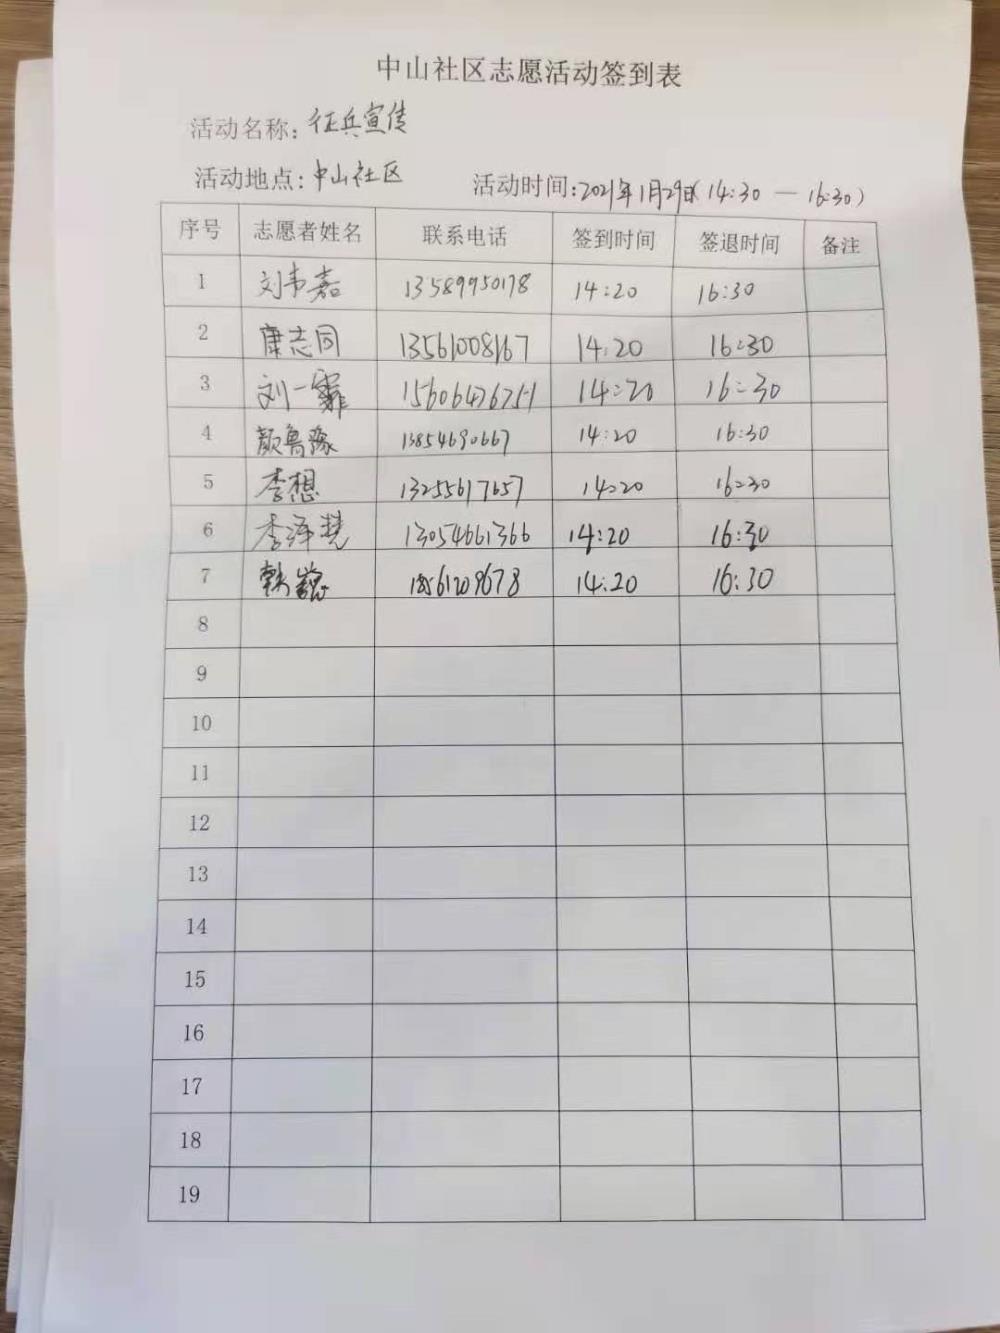 中山社区志愿活动签到表
活动名称: 征兵宣传
活动地点: 中山社区 活动时间: 2021年1月29日(14:30 — 16:30)
序号 志愿者姓名 联系电话 签到时间 签退时间 备注
1 刘韦嘉 13589950178 14:20 16:30
2 康志同 13561008167 14:20 16:30
3 刘一霏 15606476751 14:20 16:30
4 颜鲁豫 13854690667 14:20 16:30
5 李想 13255617657 14:20 16:30
6 李泽慧 13054661366 14:20 16:30
7 14:20 16:30
8
9
10
11
12
13
14
15
16
17
18
19